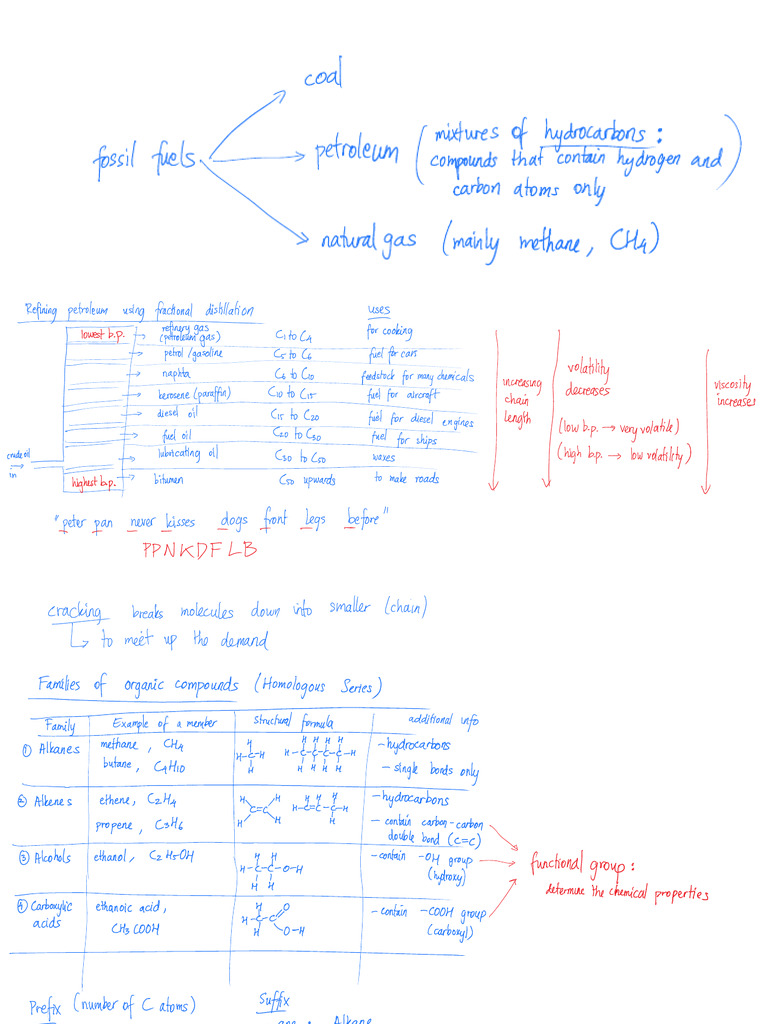 coal
fossil fuels
petroleum (mixtures of hydrocarbons :
compounds that contain hydrogen and
carbon atoms only)
natural gas (mainly methane, CH4)
Refining petroleum using fractional distillation
uses
lowest b.p.
refinery gas
(petroleum gas)
C1 to C4
for cooking
petrol /gasoline
C5 to C6
fuel for cars
naphta
C6 to C10
feedstock for many chemicals
kerosene (paraffin)
C10 to C15
fuel for aircraft
diesel oil
C15 to C20
fuel for diesel engines
fuel oil
C20 to C30
fuel for ships
lubricating oil
C30 to C50
waxes
crude oil
in
highest b.p.
bitumen
C50 upwards
to make roads
increasing
chain
length
volatility
decreases
(low b.p. → very volatile)
(high b.p. → low volatility)
viscosity
increases
"peter pan never kisses dogs front legs before"
PPNKDFLB
cracking breaks molecules down into smaller (chain)
to meet up the demand
Families of organic compounds (Homologous Series)
Family
Example of a member
structural formula
additional info
① Alkanes
methane, CH4
butane, C4H10
H
H-C-H
H
H H H H
H-C-C-C-C-H
H H H H
-hydrocarbons
- single bonds only
② Alkenes
ethene, C2H4
propene, C3H6
H H
C=C
H H
H H H
H-C=C-C-H
H
-hydrocarbons
- contain carbon-carbon
double bond (C=C)
③ Alcohols
ethanol, C2H5OH
H H
H-C-C-O-H
H H
- contain -OH group
(hydroxy)
④ Carboxylic
acids
ethanoic acid,
CH3COOH
H O
H-C-C
H O-H
- contain -COOH group
(carboxyl)
functional group :
determine the chemical properties
Prefix (number of C atoms)
Suffix
ane : Alkane